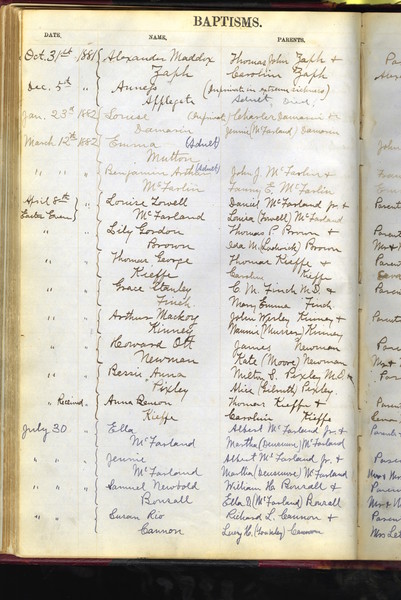 BAPTISMS.
DATE. NAME. PARENTS.
Oct. 31st 1881 Alexander Maddox Thomas John Zaph &
Zaph Caroline Zaph
Dec. 5th " (In private in extreme sickness)
Applegate Adult, Died
Jan. 23rd 1882 Louise (In private) Charles Damarin &
Damarin Jennie (McFarland) Damarin
March 12th 1882 Emma (Adult)
Mutton
" " Benjamin Arthur (Adult) John J. McFarlin &
McFarlin Fanny E. McFarlin
April 8th Louise Lowell Daniel McFarland Jr. &
Easter Even McFarland Louisa (Lowell) McFarland
" " Lily Gordon Thomas P. Brown &
Brown Ida M. Brown
" " Thomas George Thomas Kieffe &
Kieffe Caroline Kieffe
" " Grace Stanley C. M. Finch M.D. &
Finch Mary Emma Finch
" " Arthur Mackoy John Wesley Kinney &
Kinney Nannie (Murray) Kinney
" " Howard Ott James Newman
Newman Kate (Moore) Newman
" " Bessie Anna Milton S. Pixley M.D. &
Pixley Alice (Gilruth) Pixley
" Received Anna Lenora Thomas Kieffe &
Kieffe Caroline Kieffe
July 30 Ella Albert McFarland Jr. &
McFarland Martha McFarland
" " Jennie Albert McFarland Jr. &
McFarland Martha McFarland
" " Samuel Newbold William H. Bonsall &
Bonsall Ella D. (McFarland) Bonsall
" " Susan Rio Richard L. Cannon &
Cannon Lucy H. Cannon